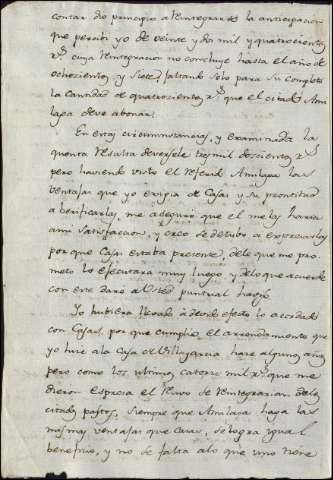 contar dio principio a Reintegrarse la anticipacion
que percivi yo de veinte y dos mil y quatrocientos
r.s cuya Reintegracion no concluye hasta el año de
ochocientos y siete, faltando solo para su completo
la cantidad de quatrocientos r.s que el citado Ami
laga deve abonar.
En estas circunstancias, y examinada la
quenta Resulta deversele tres mil doscientos r.s
pero haviendo visto el referido Amilaga las
ventajas que yo exigia de Casas y su prontitud
a verificarlas, me aseguro que el me las haria
a mi satisfaccion, y creo se detubo a expresarlas
por que Casas estaba presente, de lo que me pro
meto lo efectuara muy luego y de lo que acuerde
con este daré a Usted puntual haviso.
Yo hubiera llevado a devido efecto lo acordado
con Casas, por que cumplio el arrendamiento que
yo hice a la Casa de Villagarcia hace algunos años
pero como los ultimos catorce mil r.s que me
dieron espresa el Recivo se Reintegrarian de los
citados pastos, siempre que Amilaga haga las
mismas ventajas que Casas, se logra igual
beneficio, y no se falta a lo que uno tiene